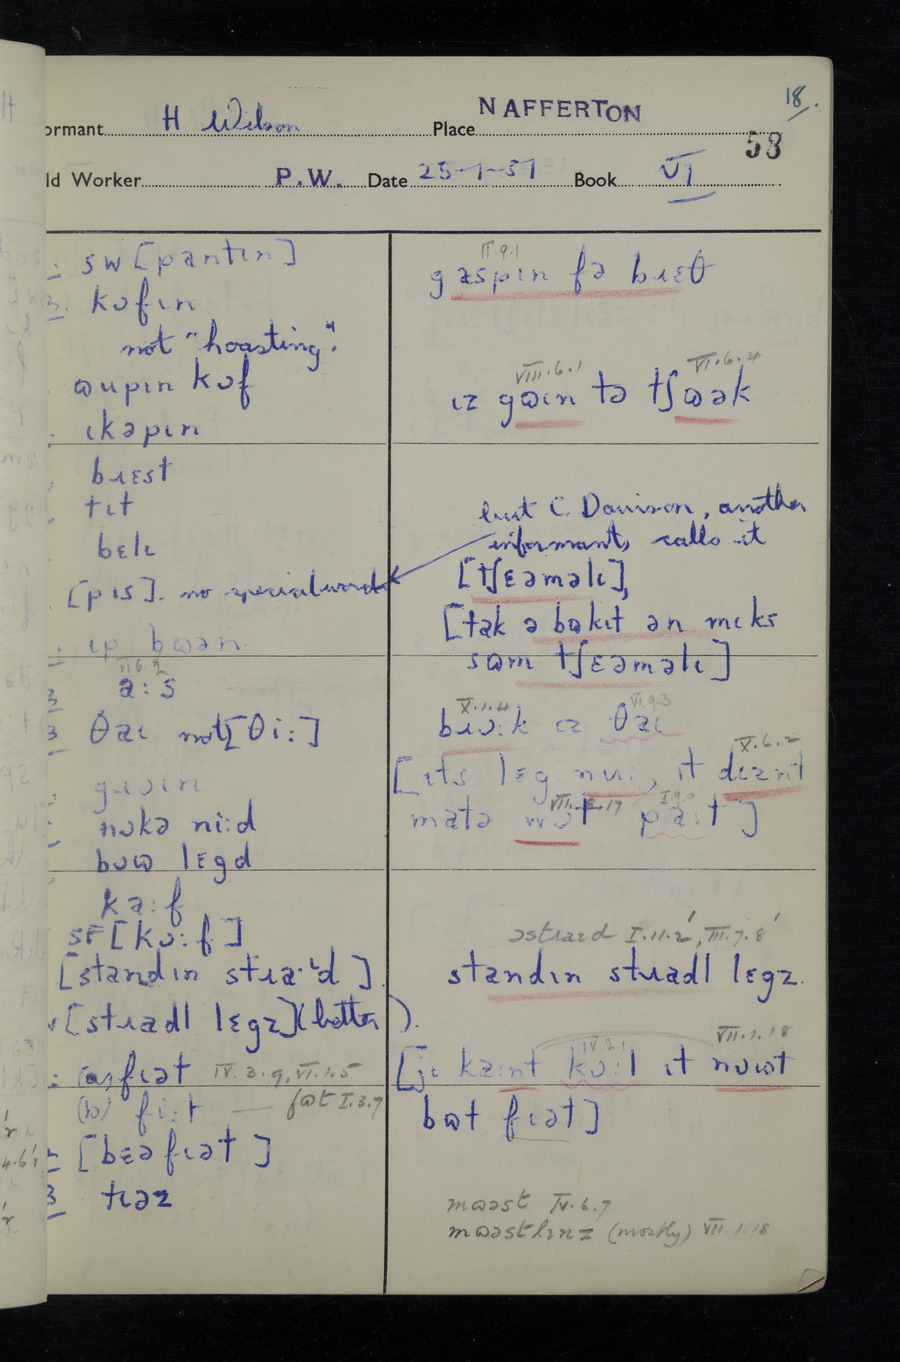 18.
ormant H Wilson Place NAFFERTON
53
ld Worker P.W. Date 25-1-51 Book VI
sw [pantɪn]
kɒfɪn
not "hoasting".
ɷupɪn kɒf
ɪkəpɪn
bɹɛst
tɪt
bɛlɪ
[pɪs]. no special word
ɪp bɷən
VI.6.2
a:s
θaɪ not [θi:]
gɹɒɪn
nɒkə ni:d
bɒɷ lɛgd
ka:f
SF [kɒ:f]
[standɪn stɹa·ɪd]
[stɹadl lɛgz] (better).
(a) fɪət IV.3.9, VI.1.5
(b) fi:t — fɷt I.3.7
[bɛəfɪət]
tɪəz
II.9.1
gaspɪn fə bɹɛθ
VIII.6.1 VI.6.4
ɪz gɷɪn tə tʃɷək
but C. Davison, another
informant, calls it
[tʃɛəməlɪ],
[tak ə bɷkɪt ən mɛks
sɷm tʃɛəməlɪ]
X.1.4 VI.9.3
bɹɒ:k ɪz θaɪ
X.6.2
[ɪts lɛg nu:, ɪt dɪznt
matə wɒt pa:t]
əstɹaɪd I.11.2', III.7.8'
standɪn stɹadl lɛgz.
IV.2.1 VII.1.18
[jɪ ka:nt kɒ:l ɪt nɒɷt
bɷt fɪət]
mɷəst IV.6.7
mɷəstlɪnz (mostly) VII.1.18